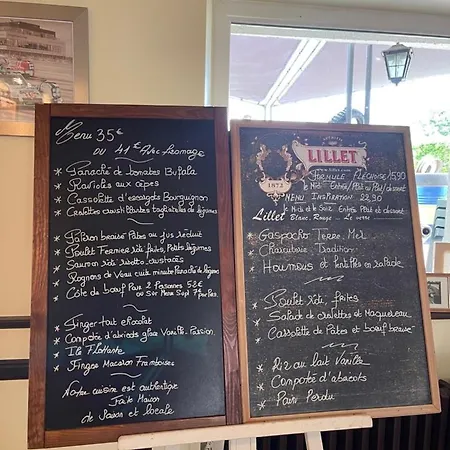 Menu 35€
ou 41€ Avec fromage
* Panaché de tomates Bufala
* Ravioles aux cèpes
* Cassolette d'escargots Bourguignon
*
* Patron braisé Pâtes au jus réduit
* Poulet Fermier rôti frites, Petits légumes
* rôti risotto crustacés
* Rognons de Veau cuit minute Panaché de légumes
* Côte de bœuf Pour 2 Personnes 52€
ou Sur Menu Supl 7€ par Pers
* Finger tout chocolat
* Compotée d'abricots glace Vanille-Passion
* Ile Flottante
* Finger Macaron Framboises
Notre cuisine est authentique
Faite Maison
de Saison et locale
LILLET
www.lillet.com
1872
Lillet
Blanc, Rouge
FORMULE 15,90
le Midi Entrée/Plat ou Plat/dessert
MENU INSPIRATION 22,90
le Midi et le Soir Entrée Plat et dessert
* Gaspacho Terre Mer
* Charcuterie Tradition
* Houmous et lentilles en salade
* Poulet rôti, frites
* Salade de crevettes et Maquereau
* Cassolette de Pâtes et bœuf braisé
* Riz au lait Vanille
* Compotée d'abricots
* Pain Perdu